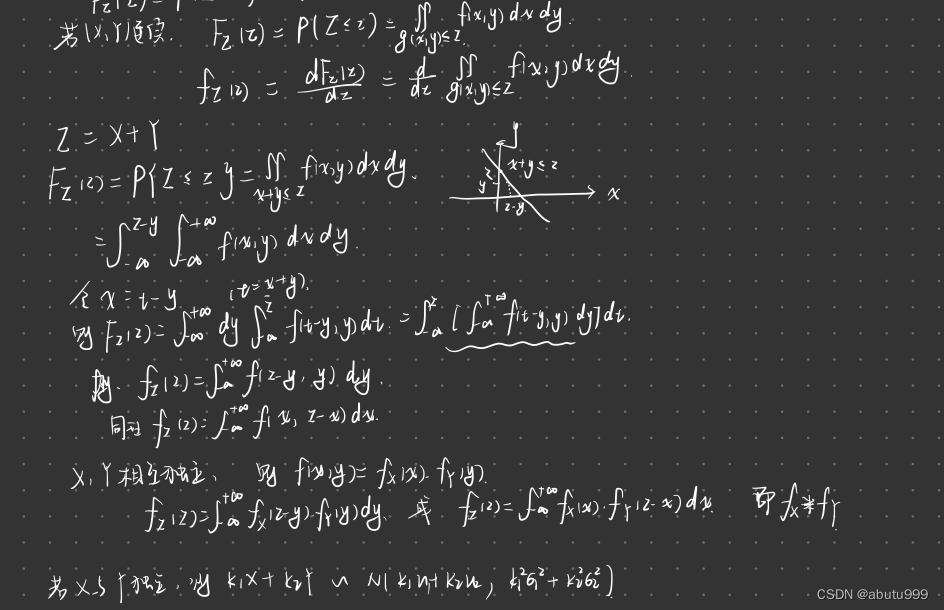 若(X,Y)连续. F_Z(z) = P(Z≤z) = ∬_{g(x,y)≤z} f(x,y)dxdy.
f_Z(z) = dF_Z(z)/dz = d/dz ∬_{g(x,y)≤z} f(x,y)dxdy.
Z = X+Y
F_Z(z) = P{Z≤z} = ∬_{x+y≤z} f(x,y)dxdy.
y
x+y≤z
z
y
z-y
x
= ∫_{-∞}^{z-y} ∫_{-∞}^{+∞} f(x,y) dxdy.
令 x=t-y (t=x+y).
则 F_Z(z) = ∫_{-∞}^{+∞} dy ∫_{-∞}^{z} f(t-y,y)dt. = ∫_{-∞}^{z} [∫_{-∞}^{+∞} f(t-y,y) dy]dt.
f_Z(z) = ∫_{-∞}^{+∞} f(z-y, y) dy.
同理 f_Z(z) = ∫_{-∞}^{+∞} f(x, z-x)dx.
X,Y相互独立, 则 f(x,y) = f_X(x)·f_Y(y).
f_Z(z) = ∫_{-∞}^{+∞} f_X(z-y)·f_Y(y)dy. 或 f_Z(z) = ∫_{-∞}^{+∞} f_X(x)·f_Y(z-x)dx. 即 f_X*f_Y
若X与Y独立, 则 k₁X+k₂Y ~ N(k₁u₁+k₂u₂, k₁²σ₁²+k₂²σ₂²)
CSDN @abutu999